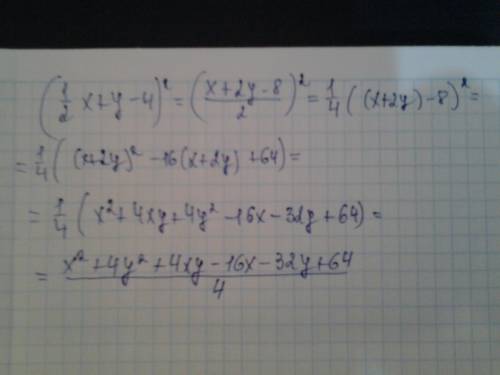 (1/2 x+y-4)² = ((x+2y-8)/2)² = 1/4 ((x+2y)-8)² =
= 1/4 ((x+2y)² -16(x+2y) +64) =
= 1/4 (x²+4xy+4y² -16x-32y+64) =
= (x²+4y²+4xy-16x-32y+64)/4